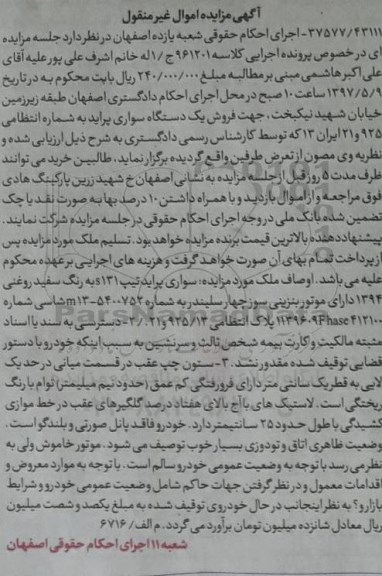 آگهی مزایده اموال غیر منقول
۳۷۵۷۷/۴۳۱۱۱- اجرای احکام حقوقی شعبه یازده اصفهان در نظر دارد جلسه مزایده
ای در خصوص پرونده اجرایی کلاسه ۹۶۱۲۰۱ ج/۱ له خانم اشرف علی پور علیه آقای
علی اکبر هاشمی مبنی بر مطالبه مبلغ ۲۴۰/۰۰۰/۰۰۰ ریال بابت محکوم به در تاریخ
۱۳۹۷/۵/۹ ساعت ۱۰ صبح در محل اجرای احکام دادگستری اصفهان طبقه زیرزمین
خیابان شهید نیکبخت، جهت فروش یک دستگاه سواری پراید به شماره انتظامی
۹۲۵ و ۲۱ ایران ۱۳ که توسط کارشناس رسمی دادگستری به شرح ذیل ارزیابی شده و
نظریه وی مصون از تعرض طرفین واقع گردیده برگزار نماید، طالبین خرید می توانند
ظرف مدت ۵ روز قبل از جلسه مزایده به نشانی اصفهان خ شهید زرین پارکینگ هادی
فوق مراجعه و از اموال بازدید و با همراه داشتن ۱۰ درصد بها به صورت نقد یا چک
تضمین شده بانک ملی در وجه اجرای احکام حقوقی در جلسه مزایده شرکت نمایند.
پیشنهاد دهنده بالاترین قیمت برنده مزایده خواهد بود. تسلیم ملک مورد مزایده پس
از پرداخت تمام بهای آن صورت خواهد گرفت و هزینه های اجرایی بر عهده محکوم
علیه می باشد. اوصاف ملک مورد مزایده: سواری پراید تیپ ۱۳۱ به رنگ سفید روغنی
۱۳۹۴ دارای موتور بنزینی سوز چهار سیلندر به شماره ۵۴۰۰۷۵۲-m۱۳ شاسی شماره
۴۱۲۱۰۰ Fhase پلاک انتظامی ۹۲۵/۱۳ و ۲۱/ ۲- دسترسی به سند یا اسناد
مثبته مالکیت و کارت بیمه شخص ثالث و سرنشین به سبب اینکه خودرو با دستور
قضایی توقیف شده مقدور نشد. ۳- ستون چپ عقب در قسمت میانی در حد یک
لایی به قطر یک سانتی متر دارای فرورفتگی کم عمق (حدود نیم میلیمتر) توام با رنگ
ریختگی است. لاستیک های با آج بالای هفتاد درصد گلگیرهای عقب در خط موازی
کشیدگی با طول حدود ۲۵ سانتیمتر دارد. خودرو فاقد پانل صورتی و بلندگو است.
وضعیت ظاهری اتاق و تودوزی بسیار خوب توصیف می شود. موتور خاموش ولی به
نظر می رسد با توجه به وضعیت عمومی خودرو سالم است. با توجه به موارد معروض و
اقدامات معمول و در نظر گرفتن جهات حاکم شامل وضعیت عمومی خودرو و شرایط
بازار و؟ به نظر اینجانب در حال خودروی توقیف شده به مبلغ یکصد و شصت میلیون
ریال معادل شانزده میلیون تومان برآورد می گردد. م الف/ ۶۷۱۶
شعبه ۱۱ اجرای احکام حقوقی اصفهان